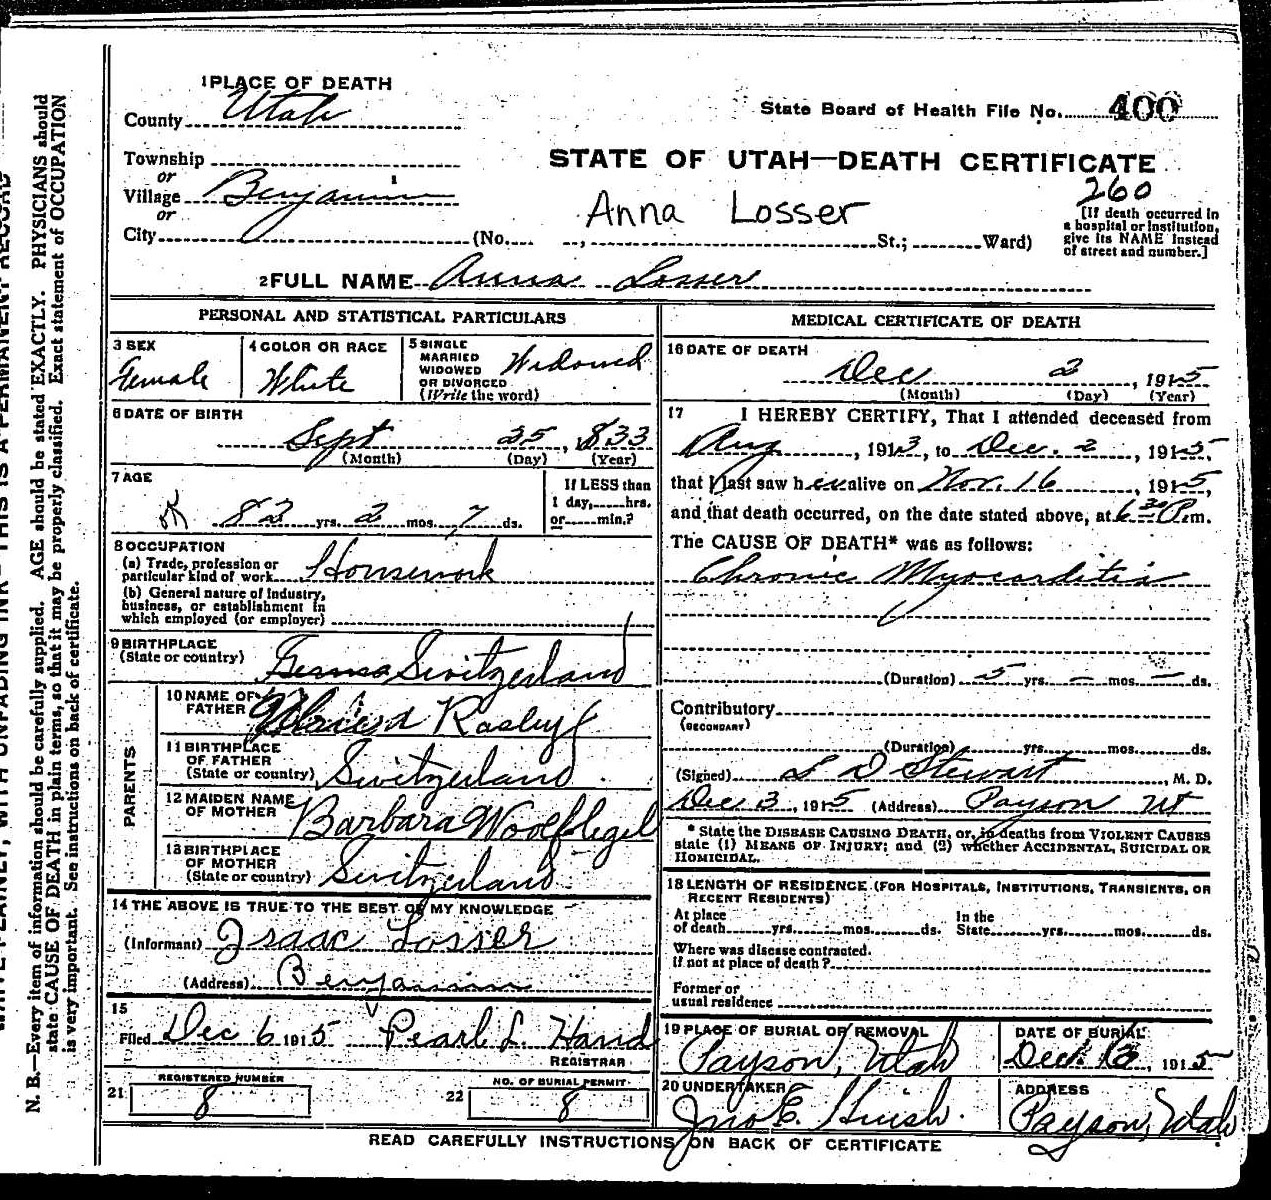 1 PLACE OF DEATH
County Utah
State Board of Health File No. 400
Township
or
Village Benjamin
or
City (No. , St.; Ward)
STATE OF UTAH—DEATH CERTIFICATE
260
Anna Losser
[If death occurred in
a hospital or institution,
give its NAME instead
of street and number.]
2 FULL NAME Anna Losser
PERSONAL AND STATISTICAL PARTICULARS
3 SEX
Female
4 COLOR OR RACE
White
5 SINGLE
MARRIED
WIDOWED
OR DIVORCED
(Write the word)
Widowed
6 DATE OF BIRTH
Sept 25, 1833
(Month) (Day) (Year)
7 AGE
OK 82 yrs. 2 mos. 7 ds.
If LESS than
1 day, hrs.
or min.?
8 OCCUPATION
(a) Trade, profession or
particular kind of work Housework
(b) General nature of industry,
business, or establishment in
which employed (or employer)
9 BIRTHPLACE
(State or country) Switzerland
PARENTS
10 NAME OF
FATHER
11 BIRTHPLACE
OF FATHER
(State or country) Switzerland
12 MAIDEN NAME
OF MOTHER Barbara Woolflegel
13 BIRTHPLACE
OF MOTHER
(State or country) Switzerland
14 THE ABOVE IS TRUE TO THE BEST OF MY KNOWLEDGE
(Informant) Isaac Losser
(Address) Benjamin
15
Filed Dec 6 1915 Pearl L. Hand
REGISTRAR
21 REGISTERED NUMBER
8
22 NO. OF BURIAL PERMIT
8
MEDICAL CERTIFICATE OF DEATH
16 DATE OF DEATH
Dec 2, 1915
(Month) (Day) (Year)
17 I HEREBY CERTIFY, That I attended deceased from
Aug, 1913, to Dec. 2, 1915,
that I last saw her alive on Nov. 16, 1915,
and that death occurred, on the date stated above, at 6 30 P.m.
The CAUSE OF DEATH* was as follows:
Chronic Myocarditis
(Duration) 5 yrs. – mos. – ds.
Contributory
(SECONDARY)
(Duration) yrs. mos. ds.
(Signed) L D Stewart, M. D.
Dec 3, 1915 (Address) Payson Ut
* State the DISEASE CAUSING DEATH, or, in deaths from VIOLENT CAUSES
state (1) MEANS OF INJURY; and (2) whether ACCIDENTAL, SUICIDAL OR
HOMICIDAL.
18 LENGTH OF RESIDENCE (FOR HOSPITALS, INSTITUTIONS, TRANSIENTS, OR
RECENT RESIDENTS)
At place
of death yrs. mos. ds.
In the
State yrs. mos. ds.
Where was disease contracted.
If not at place of death?
Former or
usual residence
19 PLACE OF BURIAL OR REMOVAL
Payson, Utah
DATE OF BURIAL
Dec., 1915
20 UNDERTAKER
Jno E. Huish.
ADDRESS
Payson, Utah
READ CAREFULLY INSTRUCTIONS ON BACK OF CERTIFICATE
N. B.—Every item of information should be carefully supplied. AGE should be stated EXACTLY. PHYSICIANS should
state CAUSE OF DEATH in plain terms, so that it may be properly classified. Exact statement of OCCUPATION
is very important. See instructions on back of certificate.